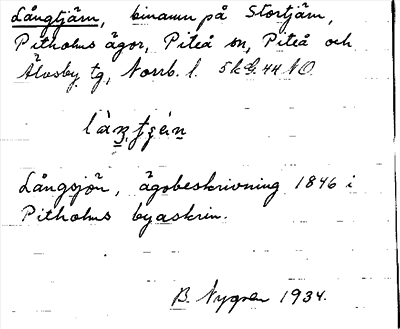 Långtjärn, binamn på Stortjärn,
Pitholms ägor, Piteå sn, Piteå och
Älvsby tg, Norrb. l. 5k G. 44 NO.
Långsjön, ägobeskrivning 1846 i
Pitholms byaskrin.
B. Nygren 1934.